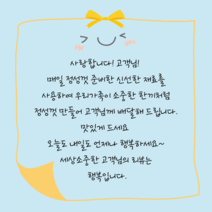 사랑합니다! 고객님!
매일 정성껏 준비한 신선한 재료를
사용하여 우리가족이 소중한 한끼처럼
정성껏 만들어 고객님께 배달해 드립니다.
맛있게 드세요
오늘도 내일도 언제나 행복하세요~
세상소중한 고객님의 리뷰는
행복입니다.